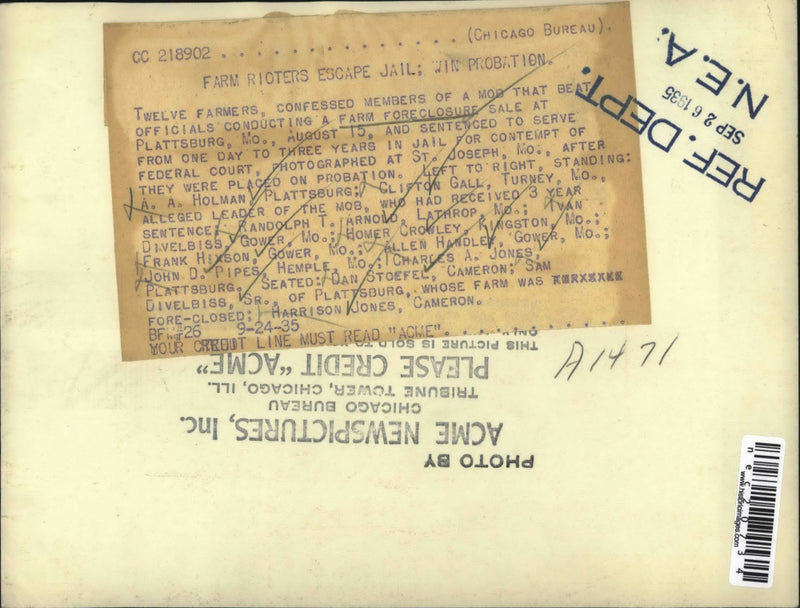 CC 218902 . . . . . . . . . . . . . . (CHICAGO BUREAU).
FARM RIOTERS ESCAPE JAIL; WIN PROBATION.
TWELVE FARMERS, CONFESSED MEMBERS OF A MOB THAT BEAT
OFFICIALS CONDUCTING A FARM FORECLOSURE SALE AT
PLATTSBURG, MO., AUGUST 15, AND SENTENCED TO SERVE
FROM ONE DAY TO THREE YEARS IN JAIL FOR CONTEMPT OF
FEDERAL COURT, PHOTOGRAPHED AT ST. JOSEPH, MO., AFTER
THEY WERE PLACED ON PROBATION. LEFT TO RIGHT, STANDING:
A. A. HOLMAN, PLATTSBURG; CLIFTON GALL, TURNEY, MO.,
ALLEGED LEADER OF THE MOB, WHO HAD RECEIVED 3 YEAR
SENTENCE; RANDOLPH T. ARNOLD, LATHROP, MO.; IVAN
DIVELBISS, GOWER, MO.; HOMER CROWLEY, KINGSTON, MO.;
FRANK HIXSON, GOWER, MO.; ALLEN HANDLEY, GOWER, MO.;
JOHN D. PIPES, HEMPLE, MO.; CHARLES A. JONES,
PLATTSBURG. SEATED: DAN STOEFEL, CAMERON; SAM
DIVELBISS, SR., OF PLATTSBURG, WHOSE FARM WAS
FORE-CLOSED; HARRISON JONES, CAMERON.
BF 26 9-24-35
YOUR CREDIT LINE MUST READ "ACME". . . . . . . . . .
REF. DEPT.
SEP 26 1935
N.E.A.
A1471
PHOTO BY
ACME NEWSPICTURES, Inc.
CHICAGO BUREAU
TRIBUNE TOWER, CHICAGO, ILL.
PLEASE CREDIT "ACME"
THIS PICTURE IS SOLD TO
www.historicimages.com